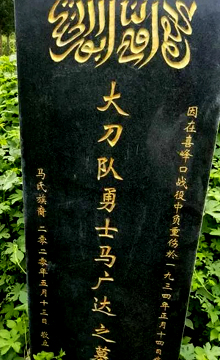 因在喜峰口战役中负重伤於一九三四年正月十四日
大刀队勇士马广达之墓
马氏族裔 二零一零年五月十三日 敬立